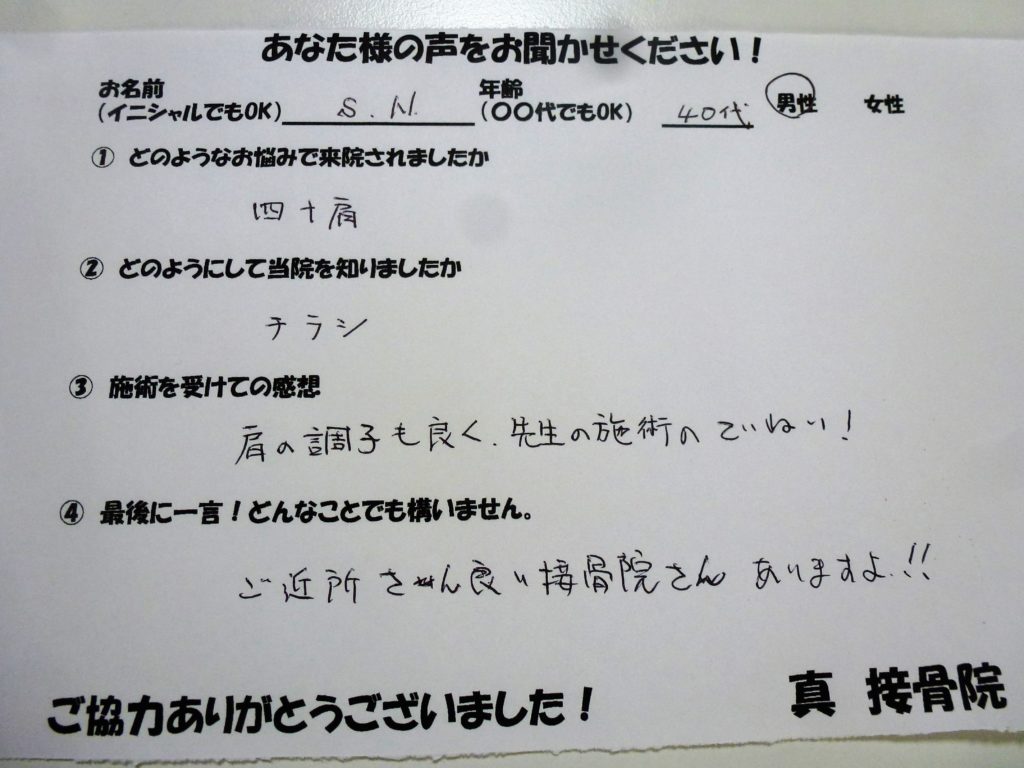 あなた様の声をお聞かせください！
お名前 年齢
(イニシャルでもOK) S.N. (〇〇代でもOK) 40代 男性 女性
① どのようなお悩みで来院されましたか
四十肩
② どのようにして当院を知りましたか
チラシ
③ 施術を受けての感想
肩の調子も良く、先生の施術のていねい！
④ 最後に一言！どんなことでも構いません。
ご近所さん良い接骨院さんありますよ!!
ご協力ありがとうございました！ 真 接骨院